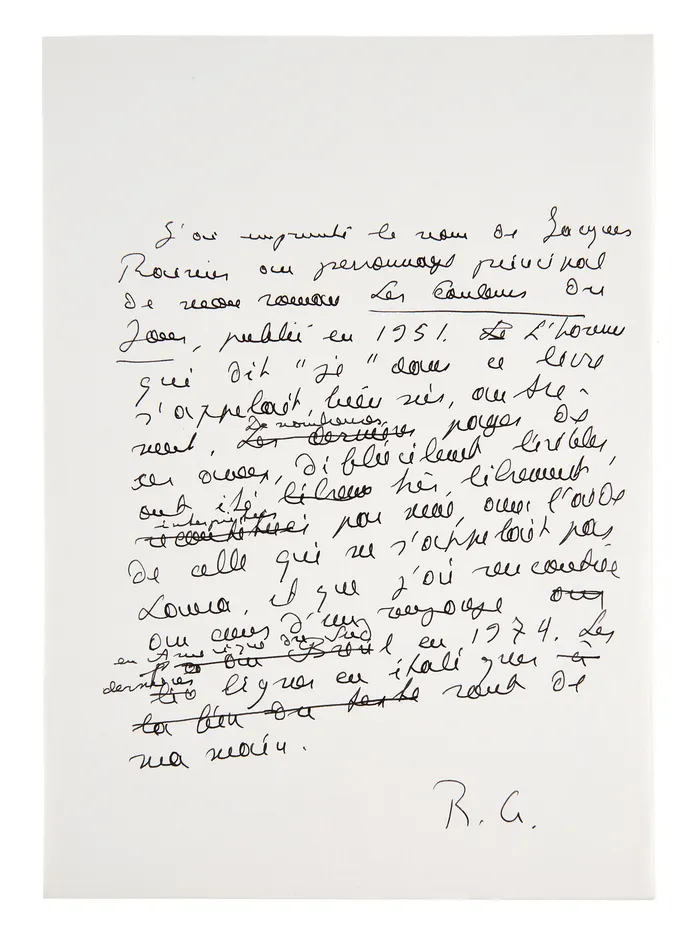 J'ai emprunté le nom de Jacques
Rainier au personnage principal
de mon roman Les Couleurs du
Jour, publié en 1951. Le L'homme
qui dit "je" dans ce livre
s'appelait, bien sûr, autre-
De nombreuses
ment. Les dernières pages de
ces aveux, difficilement lisibles,
ont été très librement,
interprétées
reconstituées par moi, avec l'aide
de celle qui ne s'appelait pas
Laura, et que j'ai rencontrée
au cours d'un voyage au
en Amérique du Sud
au Brésil en 1974. Les
dernières
lignes en italiques à
la fin du texte sont de
ma main.
R. G.